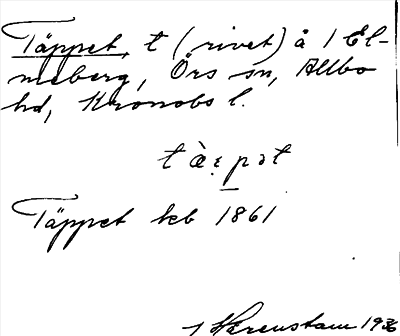 Täppet, t (rivet) å 1 El-
meberg, Örs sn, Allbo
hd, Kronobs l.
tæ̀ꞓpət
Täppet kb 1861
1936